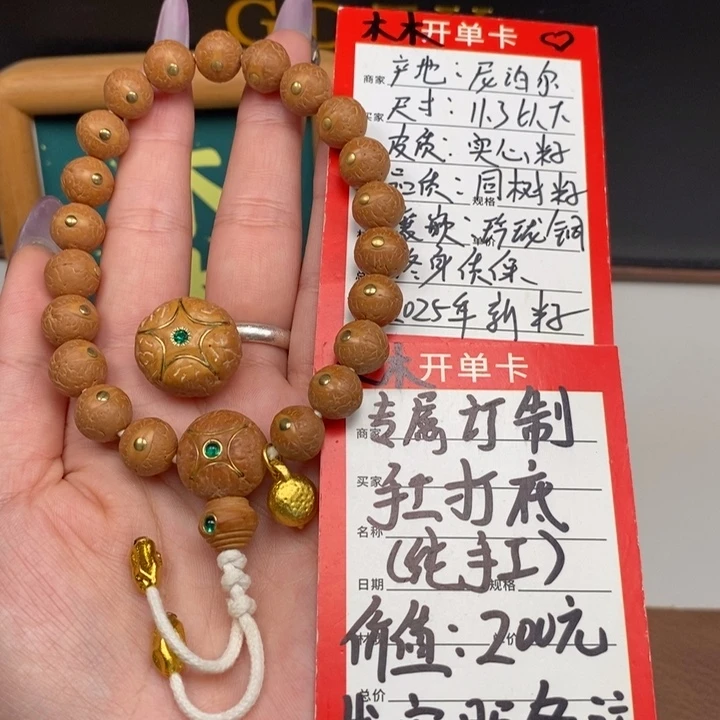 木木开单卡
商家 产地：尼泊尔
买家 尺寸：11.3以下
皮质：实心籽
品质：同树籽
规格
玲珑/铜
终身质保
2025年新籽
木开单卡
商家 专属订制
买家 手工打底
名称
(纯手工)
日期 规格
价值：200元
总价